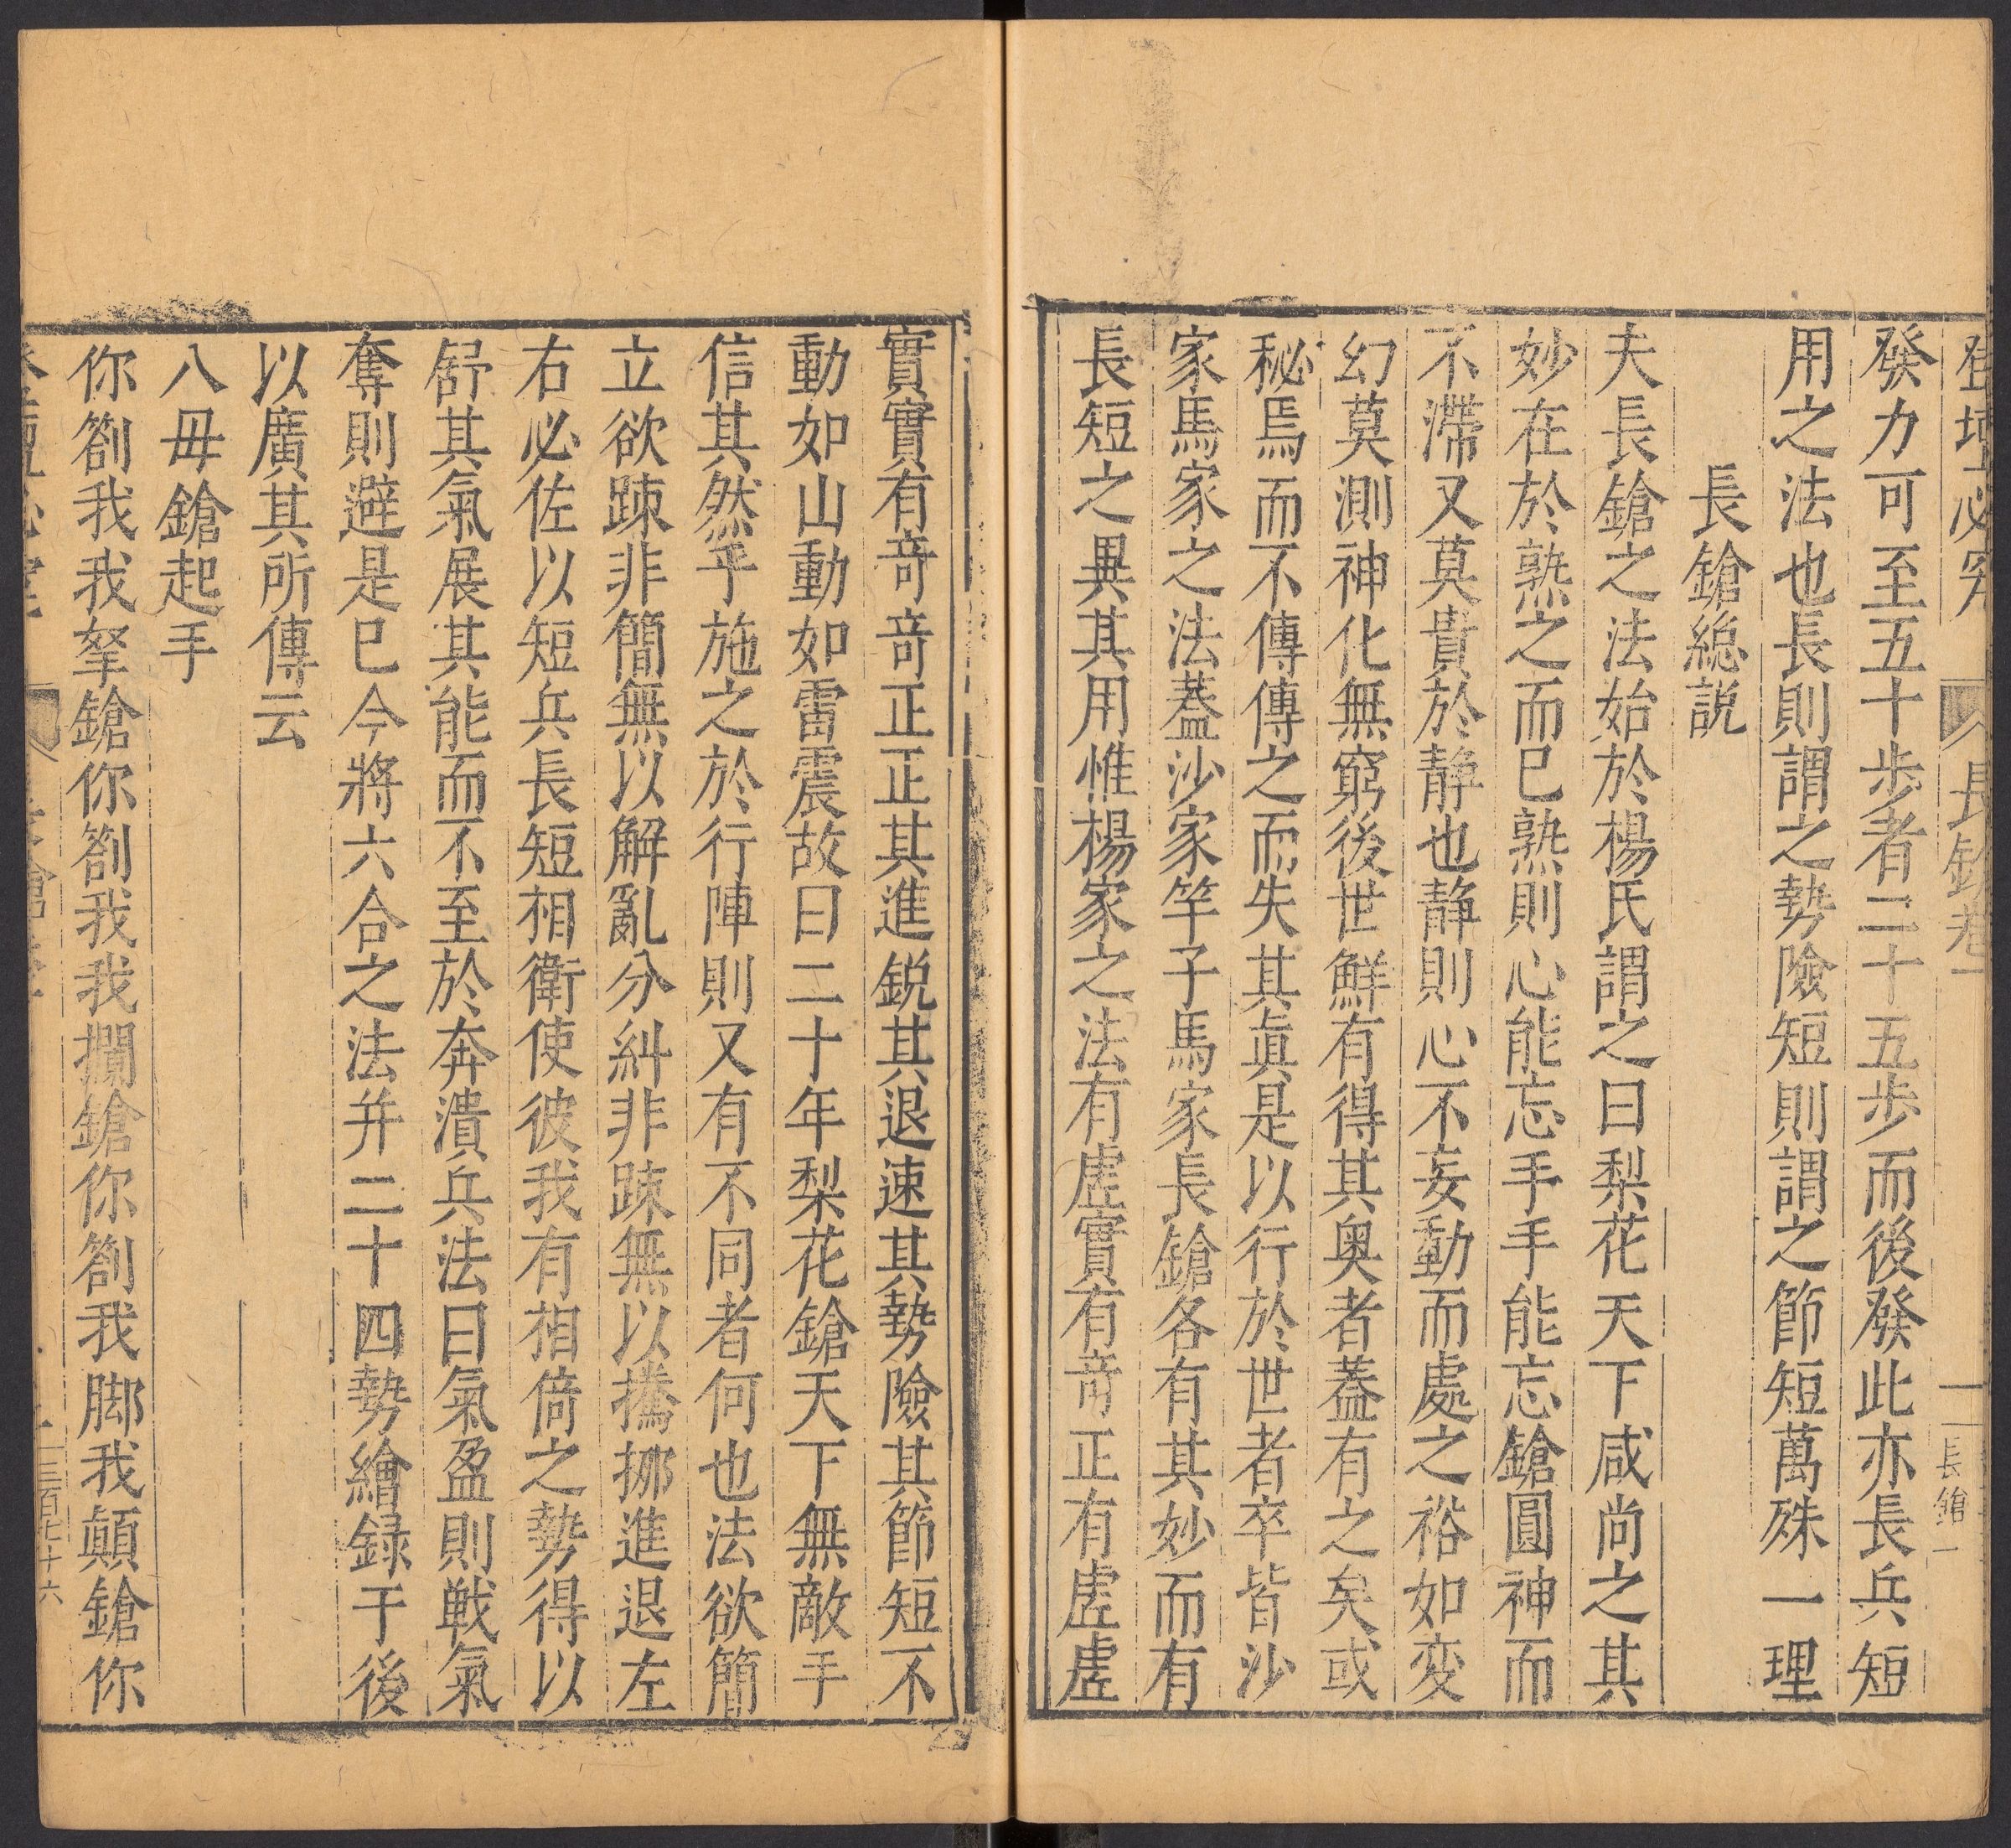 登壇必究
長鎗卷一
長鎗一
發力可至五十步者二十五步而後發此亦長兵短
用之法也長則謂之勢險短則謂之節短萬殊一理
長鎗緫説
夫長鎗之法始於楊氏謂之曰梨花天下咸尚之其
妙在於熟之而已熟則心能忘手手能忘鎗圓神而
不滯又莫貴於静也静則心不妄動而處之裕如变
幻莫測神化無窮後世鮮有得其奥者蓋有之矣或
秘焉而不傳傳之而失其真是以行於世者卒皆沙
家馬家之法蓋沙家竿子馬家長鎗各有其妙而有
長短之異其用惟楊家之法有虚實有竒正有虚虚
實實有竒竒正正其進鋭其退速其勢險其節短不
動如山動如雷震故曰二十年梨花鎗天下無敵手
信其然乎施之於行陣則又有不同者何也法欲簡
立欲踈非簡無以解亂分糾非踈無以擕挪進退左
右必佐以短兵長短相衛使彼我有相倚之勢得以
舒其氣展其能而不至於奔潰兵法曰氣盈則戦氣
奪則避是已今將六合之法并二十四勢繪録于後
以廣其所傳云
八毋鎗起手
你劄我我拏鎗你劄我我攔鎗你劄我脚我顛鎗你